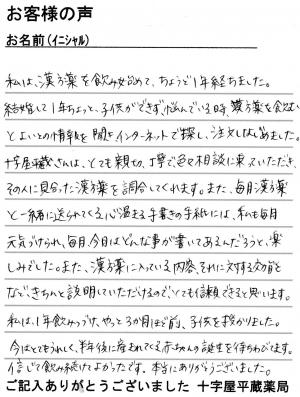 お客様の声
お名前(イニシャル)
私は、漢方薬を飲み始めて、ちょうど1年経ちました。
結婚して1年ちょっと、子供ができず、悩んでいる時、漢方薬を飲むと
よいとの情報を聞き、インターネットで探し、注文しはじめました。
十字屋平蔵さんは、とても親切、丁寧で色々相談に乗っていただき、
その人に見合った漢方薬を調合してくれます。また、毎月漢方薬
と一緒に送られてくる心温まる手書きの手紙には、私も毎月
元気づけられ、毎月、今日はどんな事が書いてあるんだろうと、楽
しみでした。また、漢方薬に入っている内容、それに対する効能
など、きちんと説明していただけるので、とても信頼できると思います。
私は、1年飲みつづけ、やっと3か月ほど前、子供を授かりました。
今はとてもうれしく、半年後に産まれてくる赤ちゃんの誕生を待ちわびてます。
信じて飲み続けてよかったです。本当にありがとうございました。
ご記入ありがとうございました 十字屋平蔵薬局